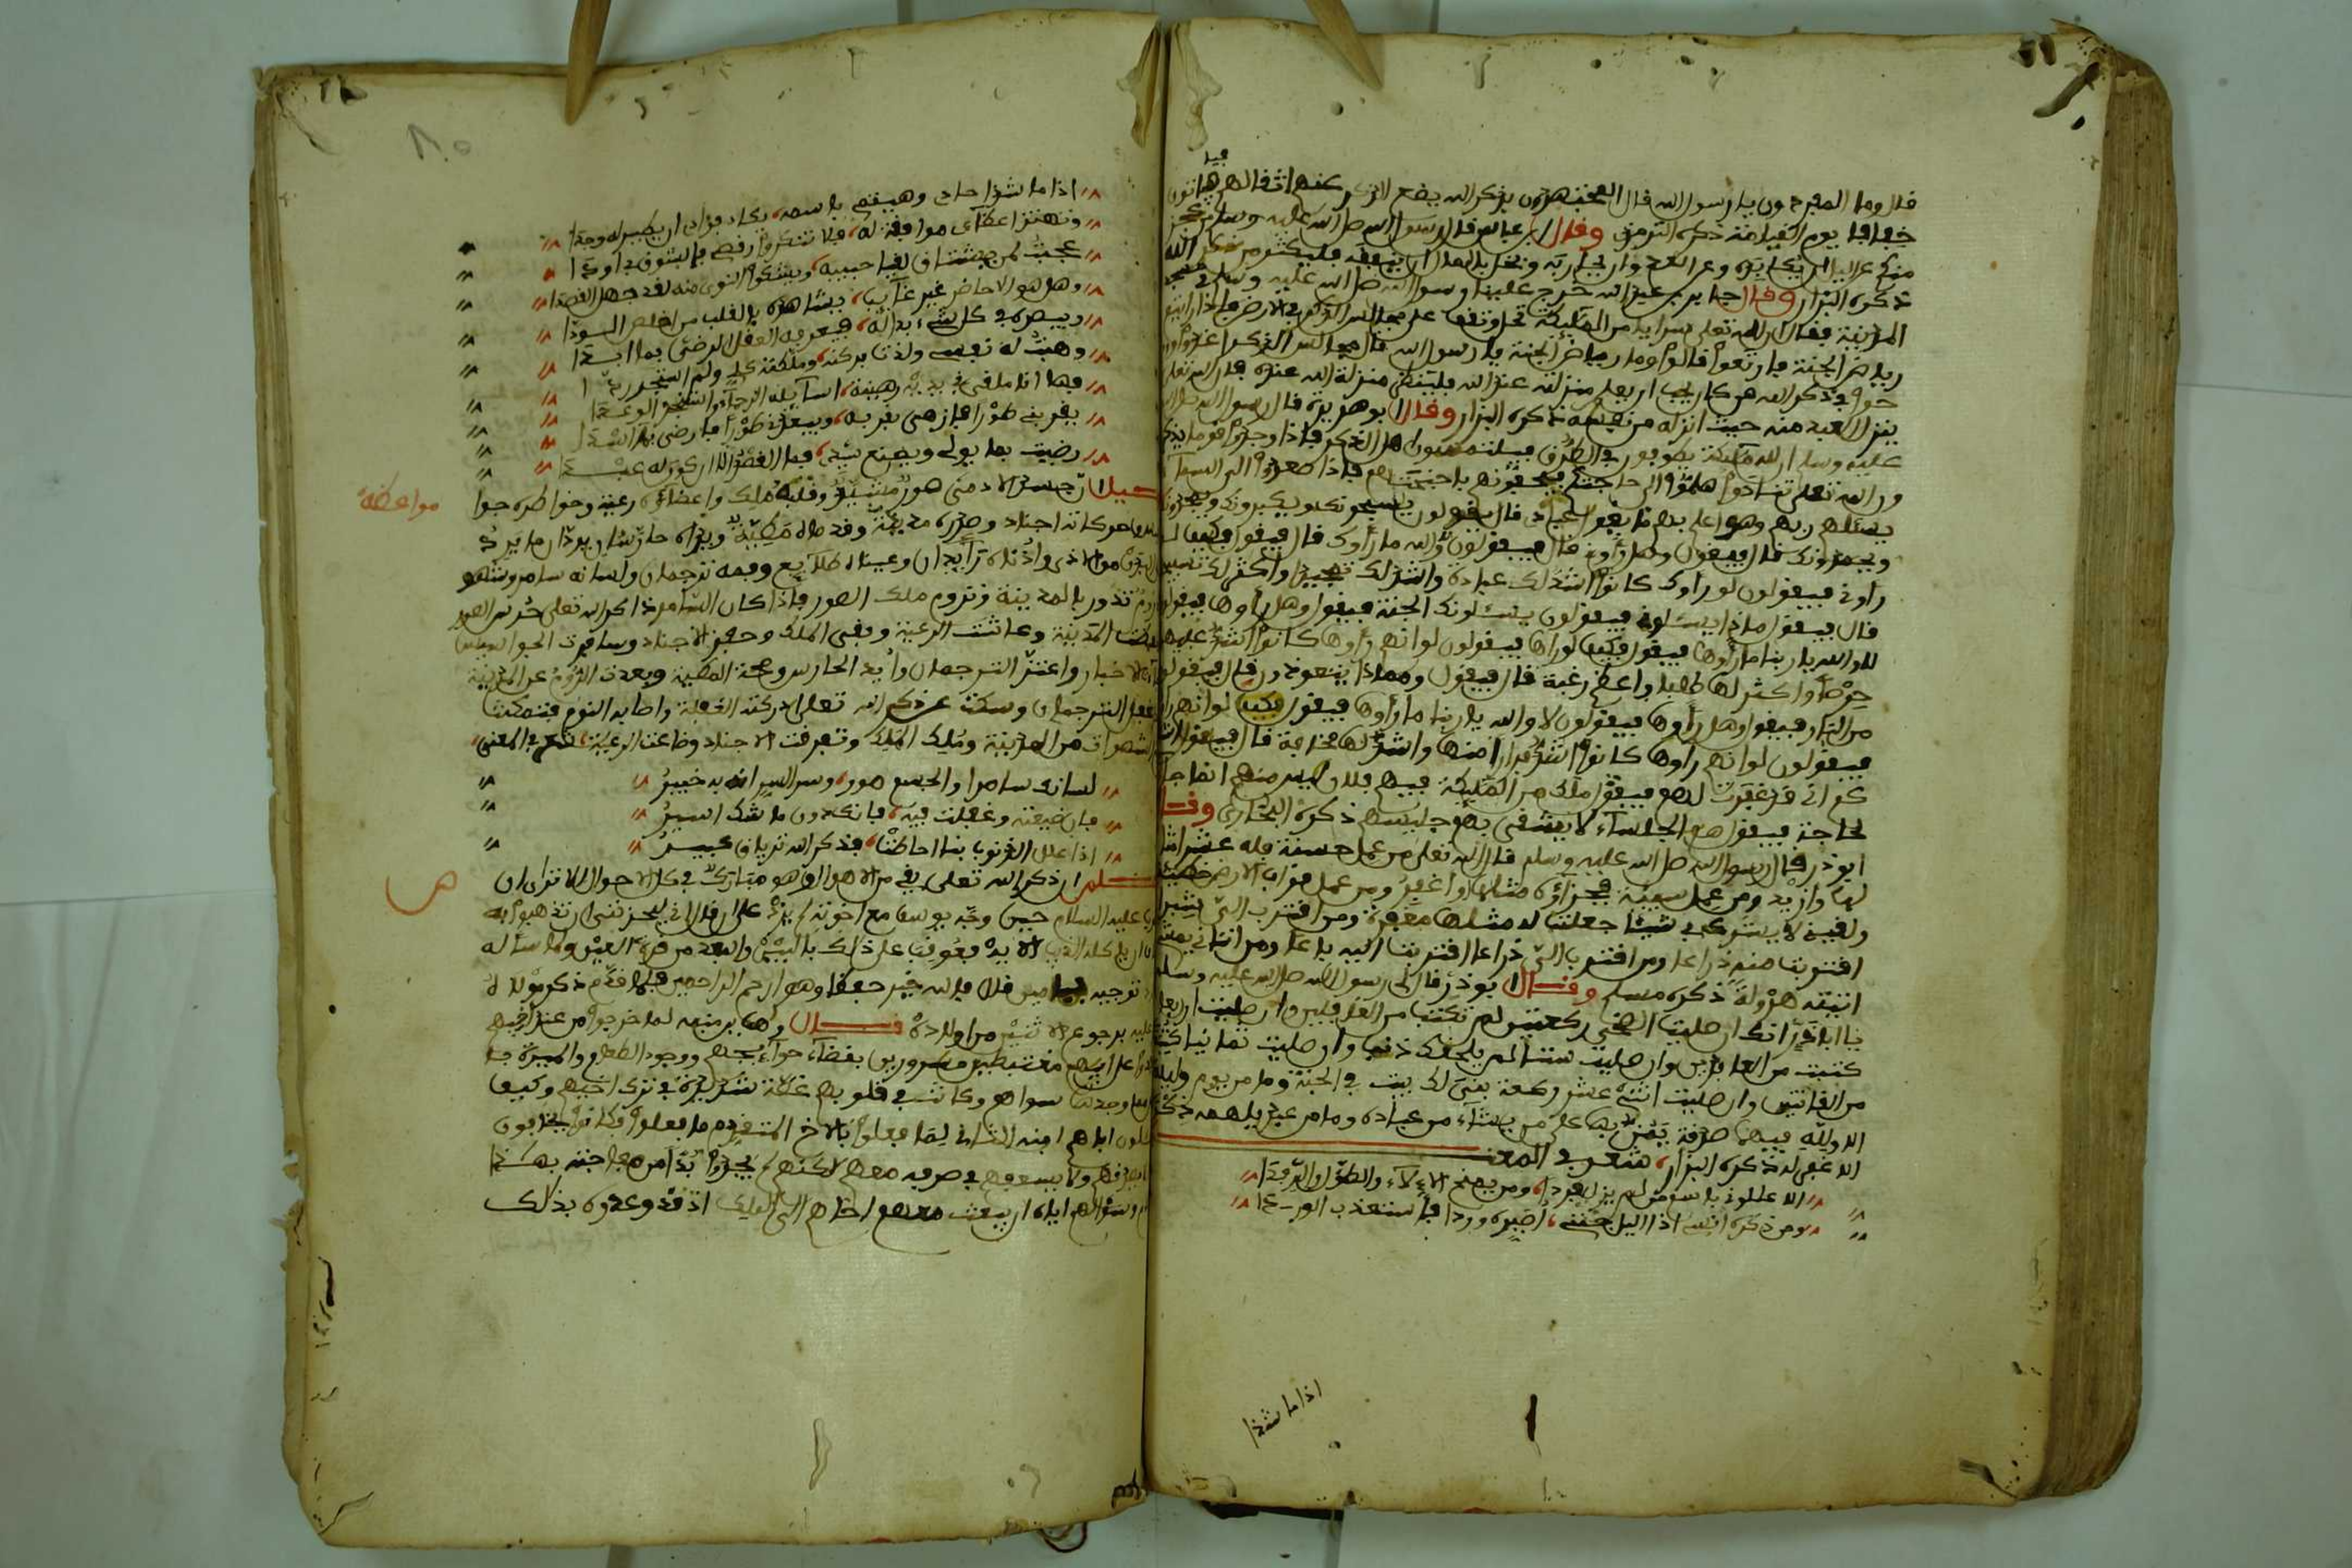 فيا
قال وما المفردون يا رسول الله قال المهتزون بذكر الله يضع الذكر عنهم اثقالهم فياتون
خفافا يوم القيامة ذكره الترمذي وقال ابن عباس قال رسول الله صلى الله عليه وسلم من عجز
منكم عن الليل ان يكابده وعن العدو ان يحاربه وبخل بالمال ان ينفقه فليكثر من ذكر الله
ذكره البزار وقال جابر بن عبد الله خرج علينا رسول الله صلى الله عليه وسلم في
المدينة فقال ان لله تعلى سرايا من الملئكة تحل وتقف على مجالس الذكر في الارض فاذا رايتم
رياض الجنة فارتعوا قالوا وما رياض الجنة يا رسول الله قال مجالس الذكر اغدوا و
حوا في ذكر الله من كان يحب ان يعلم منزلته عند الله فلينظر منزلة الله عنده فان الله تعلى
ينزل العبد منه حيث انزله من نفسه ذكره البزار وقال ابو هريرة قال رسول الله صلى الله
عليه وسلم ان لله ملئكة يطوفون في الطرق يلتمسون اهل الذكر فاذا وجدوا قوما يذكر
ون الله تعلى تنادوا هلموا الى حاجتكم فيحفونهم باجنحتهم فاذا الى السمآ
يسئلهم ربهم وهو اعلم بهم ما يقول عبادي قال يقولون يسبحونك ويكبرونك
ويمجدونك قال فيقول وهل رأوني قال فيقولون لا والله ما رأوك قال فيقول فكيف لو
راوني فيقولون لو رأوك كانوا اشد لك عبادة واشد لك تمجيدا واكثر لك تسبيحا
قال فيقول ماذا يسئلون فيقولون يسئلونك الجنة فيقول وهل رأوها فيقولون
لا والله يا ربنا ما رأوها فيقول فكيف لو رأوها فيقولون لو انهم رأوها كانوا اشد عليها
حرصا واكثر لها طلبا واعظم رغبة قال فيقول ومماذا يتعوذون قال فيقولون
من النار فيقول وهل رأوها فيقولون لا والله يا ربنا ما رأوها فيقول فكيف لو انهم رأوها
فيقولون لو انهم راوها كانوا اشد فرارا منها واشد لها مخافة قال فيقول
كم اني قد غفرت لهم فيقول ملك من الملئكة فيهم فلان ليس منهم انما جا
لحاجة فيقول هم الجلسآء لا يشقى بهم جليسهم ذكره البخاري وقال
ابو ذر قال رسول الله صلى الله عليه وسلم قال الله تعلى من عمل حسنة فله عشر امثا
لها وازيد ومن عمل سيئة فجزآؤه مثلها او اغفر ومن عمل قراب الارض خطيئة
ولقيني لا يشرك بي شيئا جعلت له مثلها مغفرة ومن اقترب الي شبرا
اقتربت منه ذراعا ومن اقترب الي ذراعا اقتربت اليه باعا ومن اتاني يمشي
اتيته هرولة ذكره مسلم وقال ابو ذر قال لي رسول الله صلى الله عليه وسلم
يا ابا ذر انك ان صليت الضحى ركعتين لم تكتب من الغافلين وان صليت اربعا
كتبت من العابدين وان صليت ستا لم يلحقك ذنب وان صليت ثمانيا كتبت
من القانتين وان صليت اثنتي عشر ركعة بني لك بيت في الجنة وما من يوم وليلة
الا ولله فيهما صدقة يمن بها على من يشاء من عباده وما من عبد يلهمه ذكر
الا غفر له ذكره البزار شعر في المعنى
الا عللوني باسم من لم يزل فردا ومن يمنح الالآء والطول والرفدا
ومن ذكره انسي اذا الليل جنني اصيره وردا فاستعذب الوردا
اذا ما شدا
اذا ما شدا حادي وهينم باسمه يكاد فؤادي ان يطير له وجدا
وتهتز اعطافي موافقة له فلا تنكروا رقصي فبالشوق قد اودا
عجبت لمن يشتاق لقيا حبيبه ويشكو النوى منه لقد جهل القصدا
وهل هو الا حاضر غير غآيب يشاهده بالقلب من اخلص الودا
ويبصره في كل شيء بدا له فيعرفه العقل الرضي بما ابدا
وهبت له نفسي ولذت بركنه وملكته كلي ولم استجر ردا
فها انا ملقى في يديه رهينة اسآيله الرحما واستنجز الوعدا
يقربني طورا فازهى بقربه ويبعدني طورا فارضى بما اسدا
رضيت بما يولي ويصنع سيدي فما الفضل الا ان اكون له عبدا
مواعظة
جسد الادمي صور مشيد وقلبه ملك واعضآؤه رعية وخواطره جوا
وحركاته اجناد وصدره مدينة وقدماه مطية ويداه حارسان يردان ما يرد
من الاذى واذناه رآيدان وعيناه طلآيع وفمه ترجمان ولسانه سامر
تدور بالمدينة وتروم ملك الصور فاذا كان السامر ذاكر الله تعلى حرس الصور
المدينة وعاشت الرعية وبقي الملك وحفز الاجناد وسافرت الجواسيس
الاخبار واعتز الترجمان وأيد الحارس وصحت المطية وبعدت الروم عن المدينة
غفل الترجمان وسكت عن ذكر الله تعلى ادركته الغفلة واصابه النوم فتمكنت
الشهوات من المدينة وملك الملك وتفرقت الاجناد وضاعت الرعية شعر في المعنى
لسانك سامر والجسم صور وسر السر انه به خبير
فان ضيعته وغفلت فيه فانك دون ما شك اسير
اذا علل الذنوب بنا احاطت فذكر الله ترياق كبير
اعلم ان ذكر الله تعلى يقي من الاهوال وهو مبارك في كل الاحوال الا ترى ان
عليه السلام حين وجه يوسف مع اخوته لم يزد على ان قال اني ليحزنني ان تذهبوا به
ان ياكله الذيب الاية فعوقب على ذلك بالبين والبعد من قرة العين ولما سأله
توجيه بنيامين قال فالله خير حفظا وهو ارحم الراحمين فلما قدم ذكر مولاه
عليه برجوع الاثنين من اولاده قال وهب بن منبه لما خرجوا من عند اخيهم
على ابيهم مغتبطين مسرورين بقضآء حوآئجهم ووجود الطعام والميرة
وجدت سواهم وكانت في قلوبهم غصة شديدة في ترك اخيهم وكيف
اباهم ابنه الثاني لما فعلوا بالاخ المتقدم ما فعلوا فكانوا يخافون
ولا يسعفهم في صرفه معهم لكنهم لم يجدوا بدا من مفاجئته بهذا
وسؤالهم اياه ان يبعث معهم اخاهم الى الملك اذ قد وعدوه بذلك